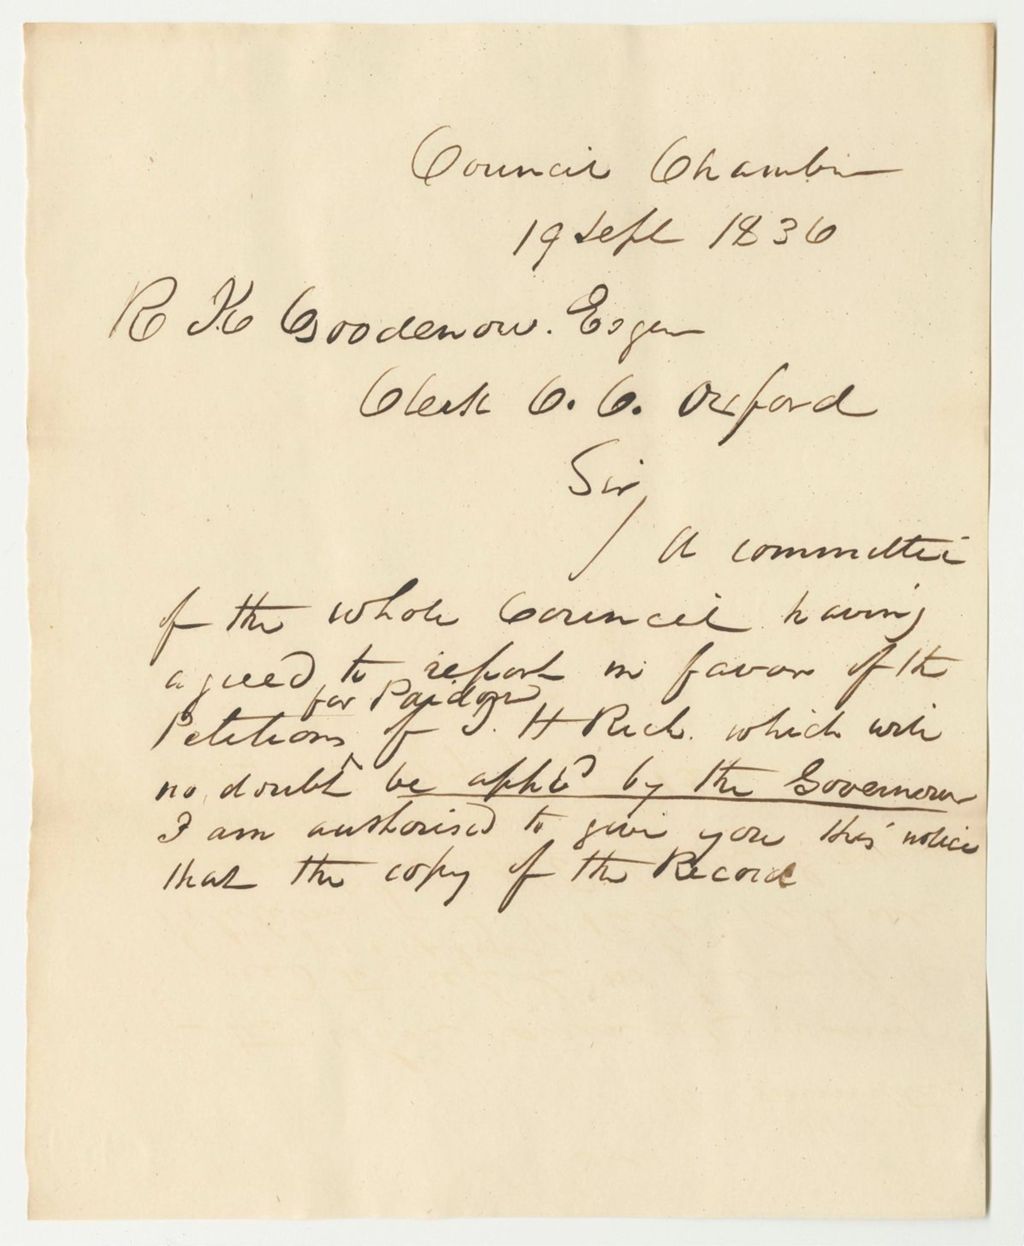 Council Chamber
19 Sept 1836
R K Goodenow. Esqr
Clerk C. C. Oxford
Sir,
A committee
of the whole Council having
agreed to report in favor of the
for Pardon
Petitions of J. H Rich. which will
no doubt be appd by the Governour
I am authorised to give you this notice
that the copy of the Record